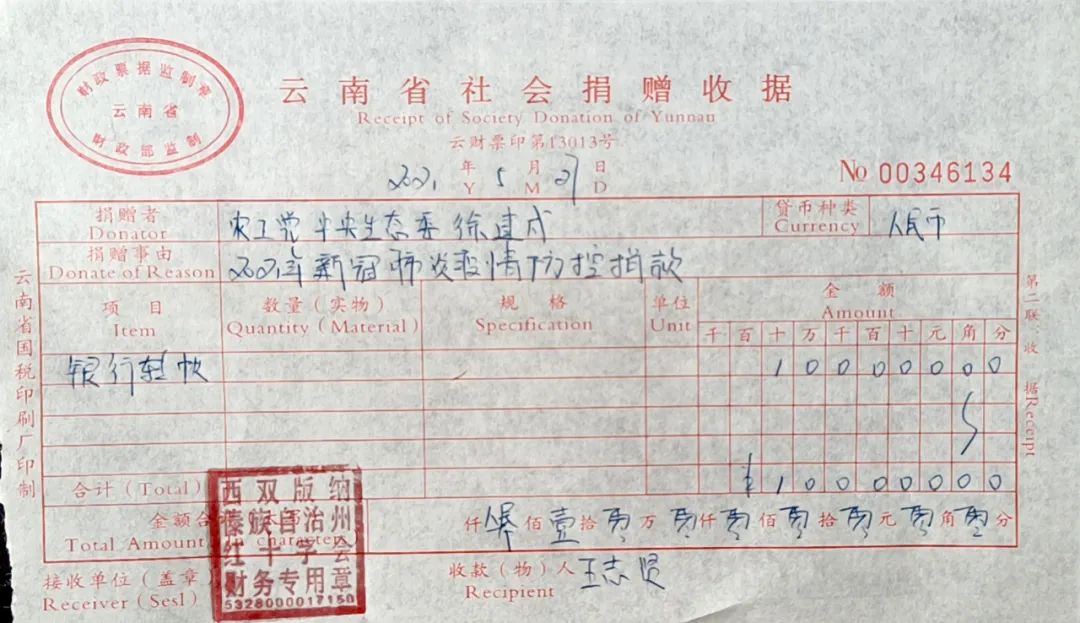 财政票据监制章
云南省
财政部监制
云南省社会捐赠收据
Receipt of Society Donation of Yunnan
云财票印第13013号
2021年 5月 27日
Y M D
No 00346134
捐赠者 农工党中央生态委 徐建成 货币种类 人民币
Donator Currency
捐赠事由 2021年新冠肺炎疫情防控捐款
Donate of Reason
项目 数量（实物） 规格 单位 金额
Item Quantity（Material） Specification Unit Amount
千 百 十 万 千 百 十 元 角 分
银行转帐 1 0 0 0 0 0 0 0
合计（Total） ¥ 1 0 0 0 0 0 0 0
金额合 仟 佰 壹 拾 零 万 零 仟 零 佰 零 拾 零 元 零 角 零 分
Total Amount characters
接收单位（盖章） 收款（物）人 王志贤
Receiver（Sesl） Recipient
西双版纳
傣族自治州
红十字会
财务专用章
5328000017150
云南省国税印刷厂印制
第二联：收据Receipt